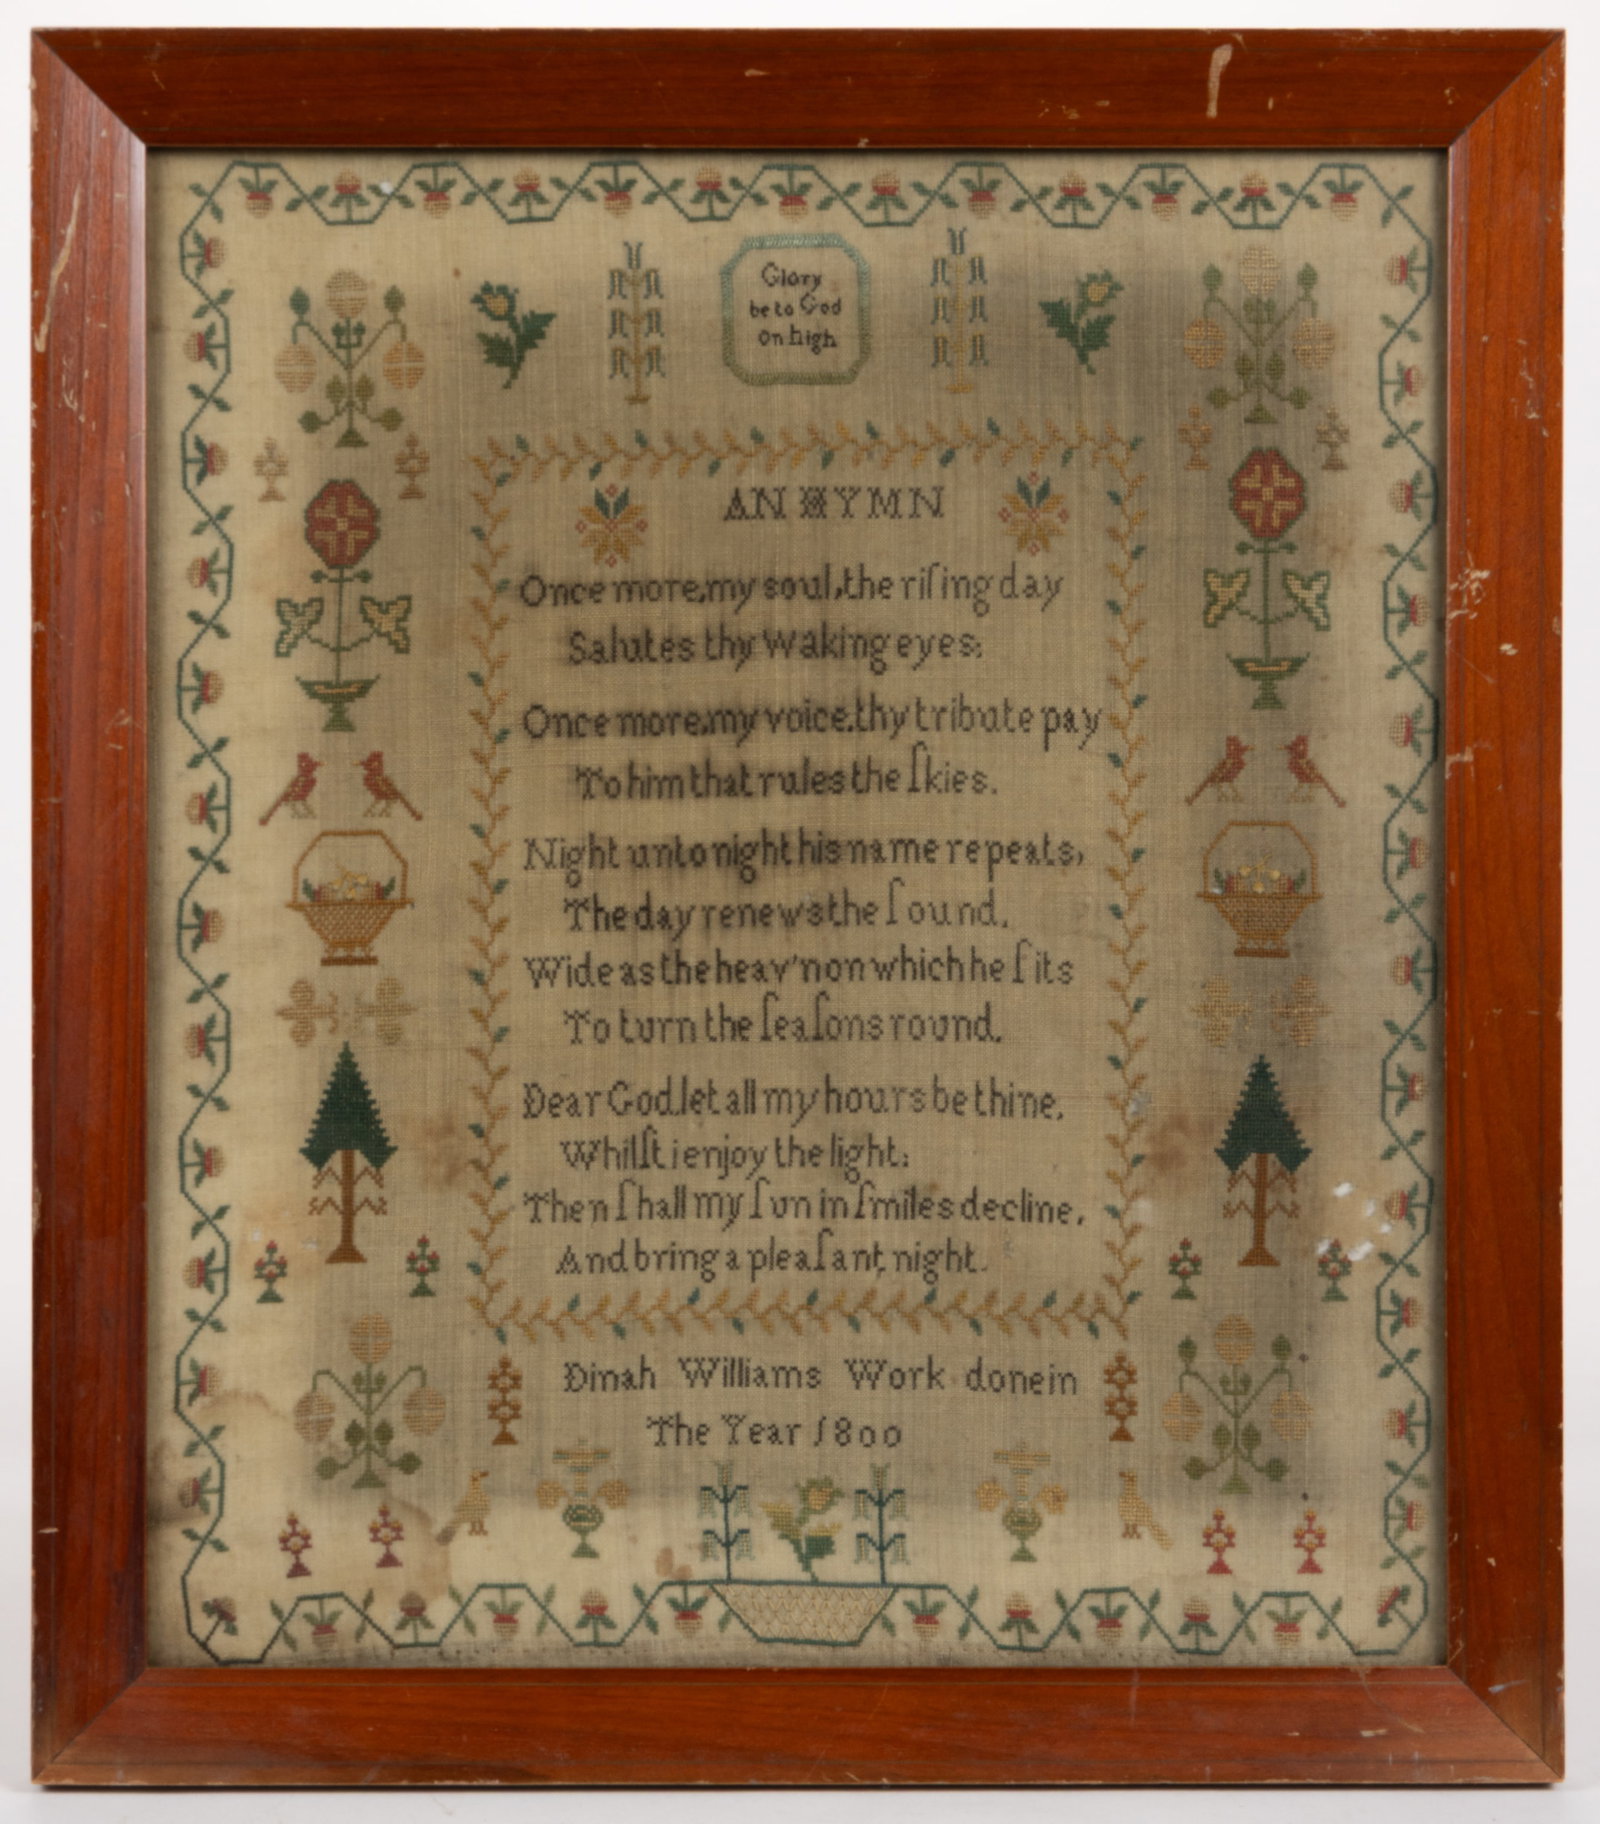 Glory
be to God
on high
AN HYMN
Once more, my soul, the riſing day
Salutes thy waking eyes;
Once more, my voice, thy tribute pay
To him that rules the ſkies.
Night unto night his name repeats,
The day renews the ſound,
Wide as the heav'n on which he ſits
To turn the ſeaſons round.
Dear God, let all my hours be thine,
Whilſt i enjoy the light;
Then ſhall my ſun in ſmiles decline,
And bring a pleaſant night.
Dinah Williams Work done in
The Year 1800